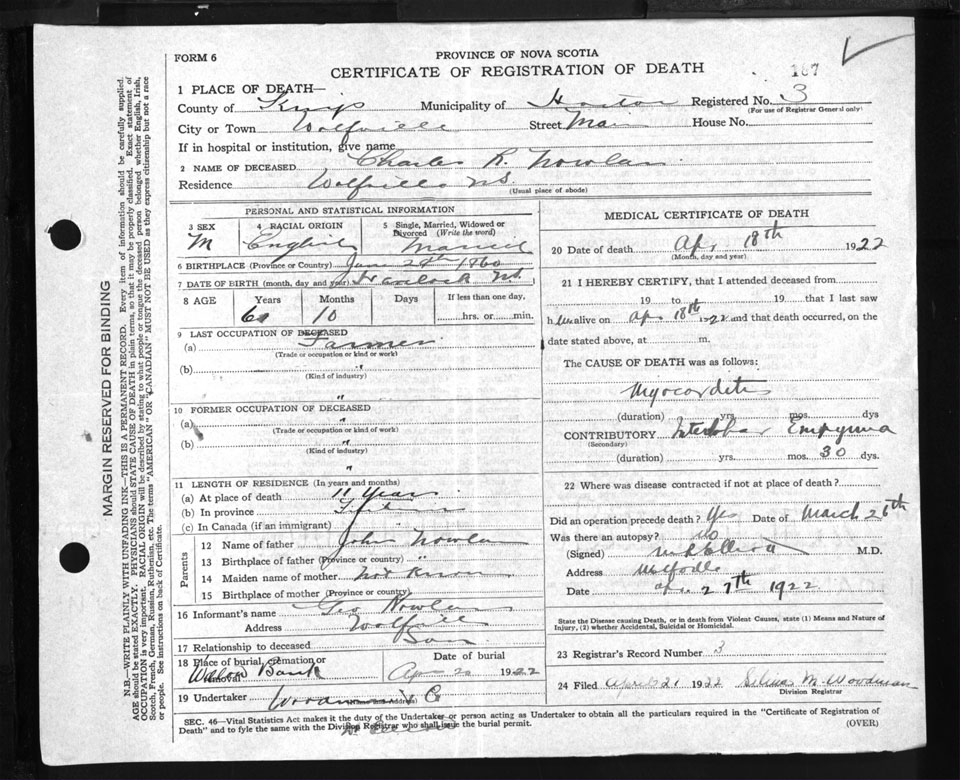 FORM 6
PROVINCE OF NOVA SCOTIA
CERTIFICATE OF REGISTRATION OF DEATH
167
1 PLACE OF DEATH—
County of Kings Municipality of Horton Registered No. 3
(For use of Registrar General only)
City or Town Wolfville Street Main House No.
If in hospital or institution, give name
2 NAME OF DECEASED Charles R. Nowlan
Residence Wolfville N.S.
(Usual place of abode)
PERSONAL AND STATISTICAL INFORMATION
3 SEX 4 RACIAL ORIGIN 5 Single, Married, Widowed or Divorced (Write the word)
M English Married
6 BIRTHPLACE (Province or Country) June 29th 1860
7 DATE OF BIRTH (month, day and year) N.S.
8 AGE Years Months Days If less than one day,
10 hrs. or min.
9 LAST OCCUPATION OF DECEASED
(a) Farmer
(Trade or occupation or kind or work)
(b) "
(Kind of industry)
"
10 FORMER OCCUPATION OF DECEASED
(a) "
(Trade or occupation or kind of work)
(b) "
(Kind of industry)
"
11 LENGTH OF RESIDENCE (In years and months)
(a) At place of death 11 Years
(b) In province
(c) In Canada (if an immigrant)
Parents
12 Name of father John Nowlan
13 Birthplace of father (Province or country) "
14 Maiden name of mother not known
15 Birthplace of mother (Province or country)
16 Informant's name Geo Nowlan
Address Wolfville
17 Relationship to deceased Son
18 Place of burial, cremation or removal Date of burial
Bank Apr 20 1922
19 Undertaker
(Name and Address)
MEDICAL CERTIFICATE OF DEATH
20 Date of death Apr 18th 1922
(Month, day and year)
21 I HEREBY CERTIFY, that I attended deceased from
19 to 19 that I last saw
h im alive on Apr 18th 1922 and that death occurred, on the
date stated above, at m.
The CAUSE OF DEATH was as follows:
Myocarditis
(duration) yrs. mos. dys
CONTRIBUTORY Interlobar Empyema
(Secondary)
(duration) yrs. mos. 30 dys.
22 Where was disease contracted if not at place of death?
Did an operation precede death? Yes Date of March 26th
Was there an autopsy? No
(Signed) M.D.
Address Wolfville
Date 27th 1922
State the Disease causing Death, or in death from Violent Causes, state (1) Means and Nature of
Injury, (2) whether Accidental, Suicidal or Homicidal.
23 Registrar's Record Number 3
24 Filed April 21 1922 M. Woodman
Division Registrar
SEC. 46—Vital Statistics Act makes it the duty of the Undertaker or person acting as Undertaker to obtain all the particulars required in the "Certificate of Registration of
Death" and to fyle the same with the Division Registrar who shall issue the burial permit.
(OVER)
MARGIN RESERVED FOR BINDING
N.B.—WRITE PLAINLY WITH UNFADING INK—THIS IS A PERMANENT RECORD. Every item of information should be carefully supplied.
AGE should be stated EXACTLY. PHYSICIANS should STATE CAUSE OF DEATH in plain terms, so that it may be properly classified. Exact statement of
OCCUPATION is very important. RACIAL ORIGIN will be described by stating to what people or tongue the deceased person belonged whether English, Irish,
Scotch, French, German, Russian, Ruthenian, etc. The terms "AMERICAN" OR "CANADIAN" MUST NOT BE USED as they express citizenship but not a race
or people. See instructions on back of Certificate.